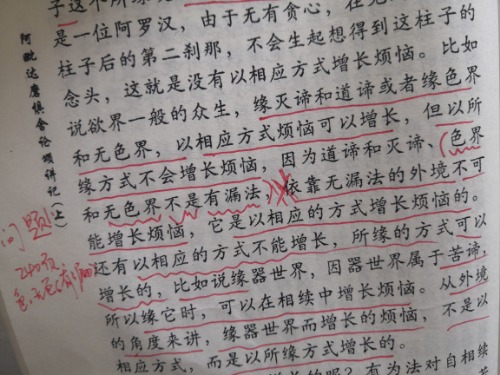 子这个所缘
是一位阿罗汉，由于无有贪心，在无
柱子后的第二刹那，不会生起想得到这柱子的
念头，这就是没有以相应方式增长烦恼。比如
说欲界一般的众生，缘灭谛和道谛或者缘色界
和无色界，以相应方式烦恼可以增长，但以所
缘方式不会增长烦恼，因为道谛和灭谛、（色界
和无色界不是有漏法，依靠无漏法的外境不可
能增长烦恼，它是以相应的方式增长烦恼的。
还有以相应的方式不能增长，所缘的方式可以
增长的，比如说缘器世界，因器世界属于苦谛，
所以缘它时，可以在相续中增长烦恼。从外境
的角度来讲，缘器世界而增长的烦恼，不是以
相应方式，而是以所缘方式增长的。
的呢？有为法对自相续
阿毗达磨俱舍论颂讲记（上）
问题
240页